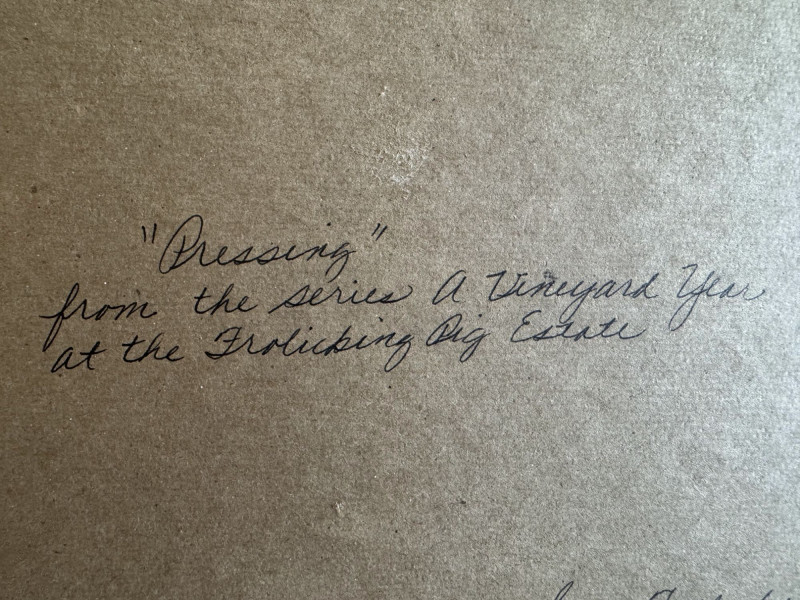 "Pressing"
from the series A Vineyard Year
at the Frolicking Pig Estate